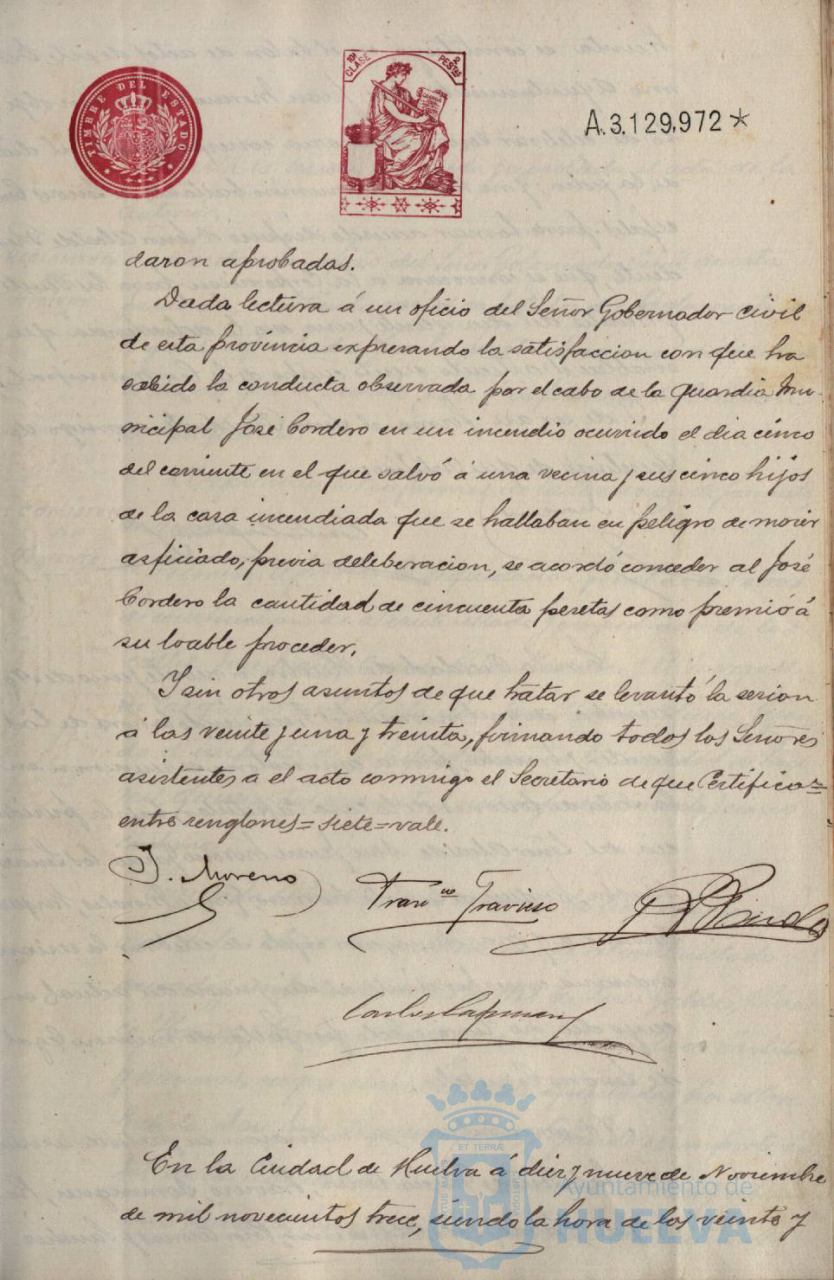 TIMBRE DEL ESTADO
10ª CLASE
2 PESTAS
A.3.129,972*
daron aprobadas.
Dada lectura á un oficio del Señor Gobernador civil
de esta provincia expresando la satisfaccion con que ha
sabido la conducta observada por el cabo de la guardia Mu-
nicipal José Cordero en un incendio ocurrido el dia cinco
del corriente en el que salvó á una vecina y sus cinco hijos
de la casa incendiada que se hallaban en peligro de morir
asficiado, previa deleberacion, se acordó conceder al José
Cordero la cantidad de cincuenta pesetas como premió á
su loable proceder.
Y sin otros asuntos de que tratar se levantó la sesion
á las veinte y una y treinta, firmando todos los Señores
asistentes á el acto conmigo el Secretario de que Certifico=
entre renglones=siete=vale.
J. Moreno
Franco Travieso
Carlos
En la Ciudad de Huelva á diez y nueve de Noviembre
de mil novecientos trece, siendo la hora de las veinte y
ET TERRÆ
Ayuntamiento de
HUELVA